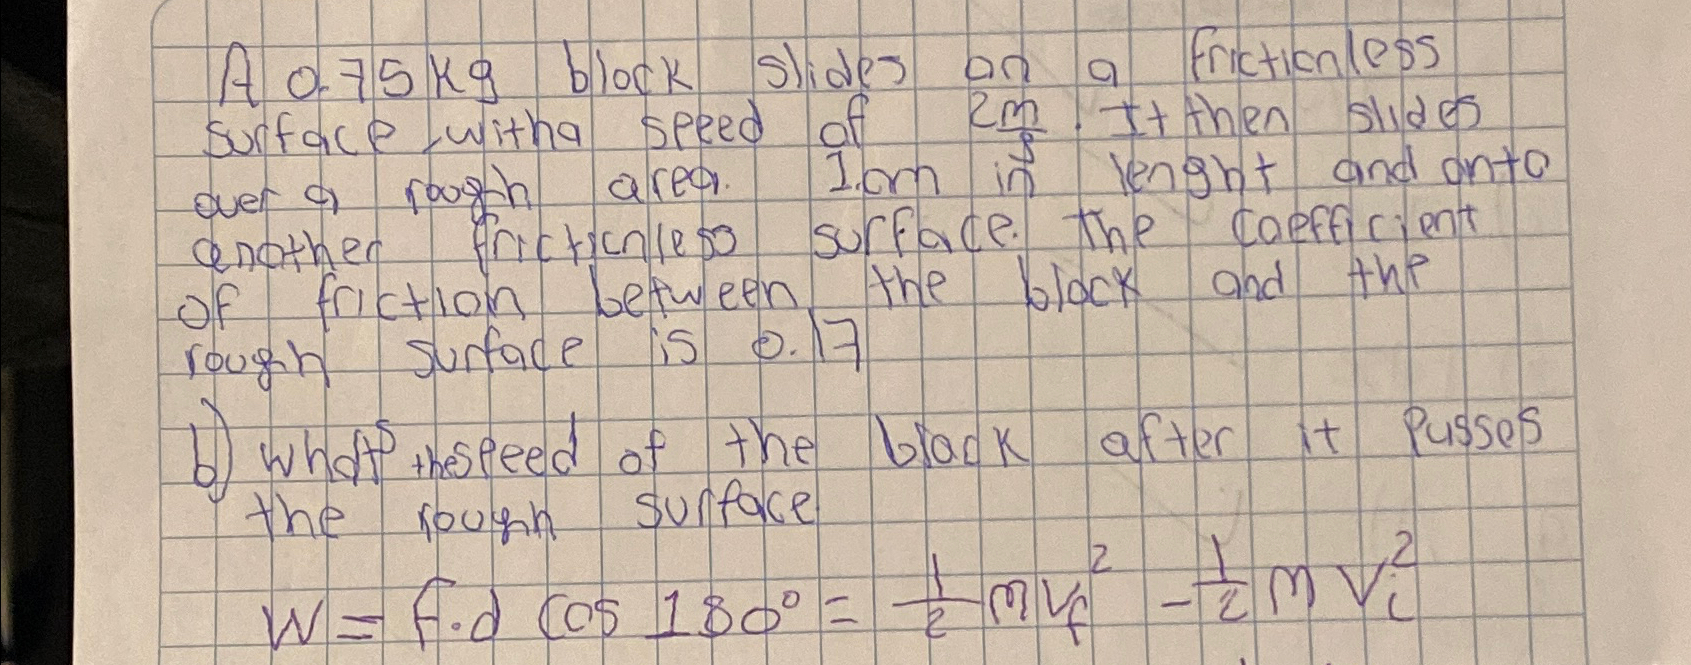 A 0.75 kg block slides on a frictionless
surface, with a speed of 2 m/s. It then slides
over a rough area. 1.0m in lenght and onto
another frictionless surface. The coefficient
of friction between the block and the
rough surface is 0.17
b) what's the speed of the block after it Passes
the rough surface
W = f.d cos 180° = 1/2 m Vf² - 1/2 m Vi²